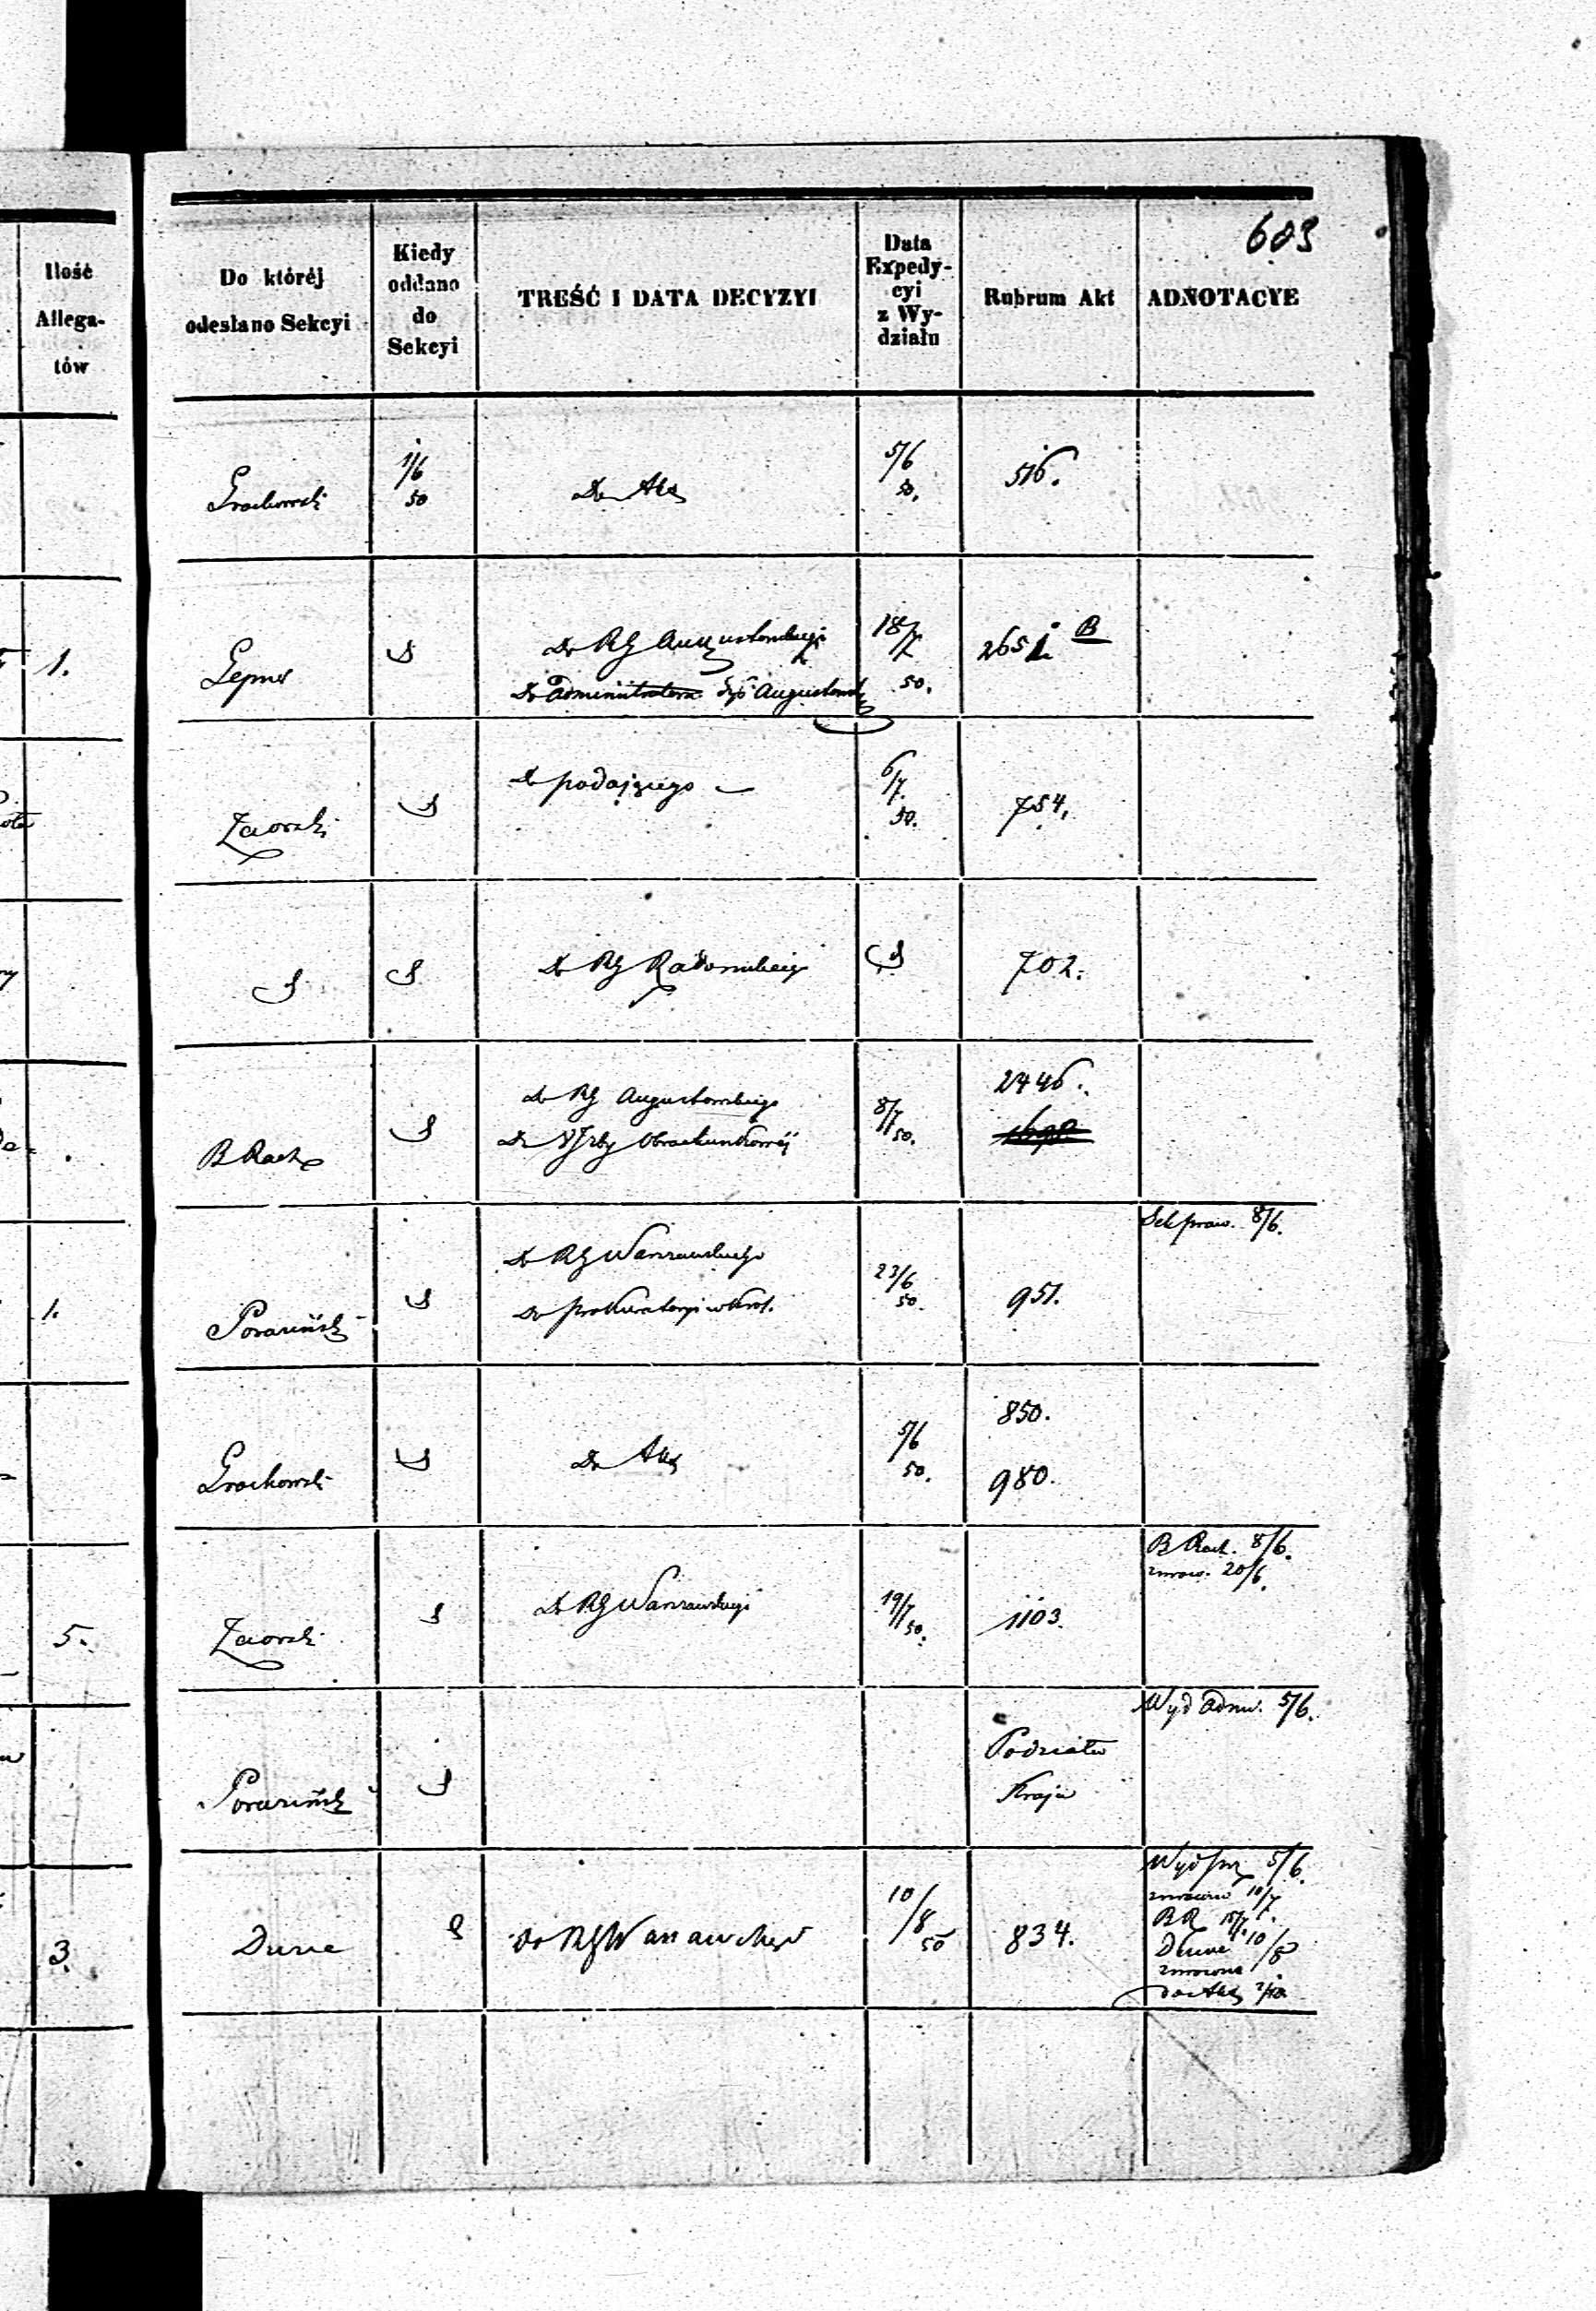 603
Ilość
Allega-
tów
Do któréj
odesłano Sekcyi
Kiedy
oddano
do
Sekcyi
TREŚĆ I DATA DECYZYI
Data
Expedy-
cyi
z Wy-
działu
Rubrum Akt
ADNOTACYE
Grochowski
1/6
50
Do Akt
5/6
50.
516.
1.
Do RG Augustowskiego
Do Administratora Augustowsk
18/7
50.
2651 B
Zaorski
Do podającego
6/7
50.
754.
Do RG Radomskiego
702.
B Rach
Do RG Augustowskiego
Do Izby Obrachunkowéj
8/7
50.
2446.
1.
Do RG Warszawskiego
Do prokuratoryi w Król.
23/6
50.
951.
Sek praw. 8/6.
Grochowski
Do Akt
5/6
50.
850.
980.
5.
Zaorski
Do RG Warszawskiego
19/7
50.
1103.
B Rach. 8/6.
zwrow. 20/6.
Podziału
Kraju
Wyd Adm. 5/6.
3.
Do RG Warszawskiego
10/8
50
834.
5/6.
10/7
BR
10/8
do Akt